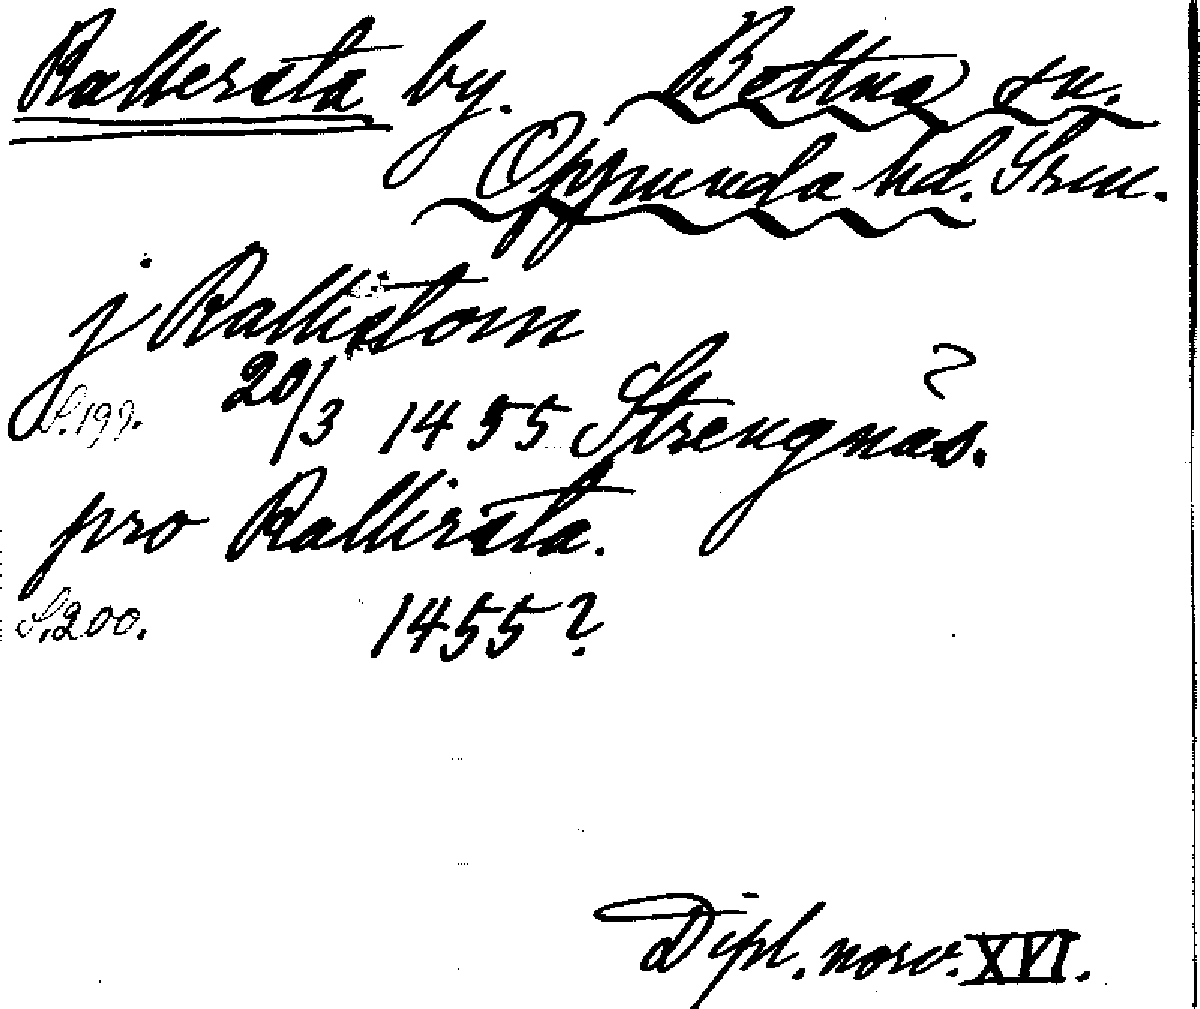 Rallersta by. Bettna sn.
Oppunda hd. Srm.
j Rallistom ?
S. 199. 20/3 1455 Strengnäs.
pro Rallirsta.
S. 200. 1455?
Dipl. norv. XVI.